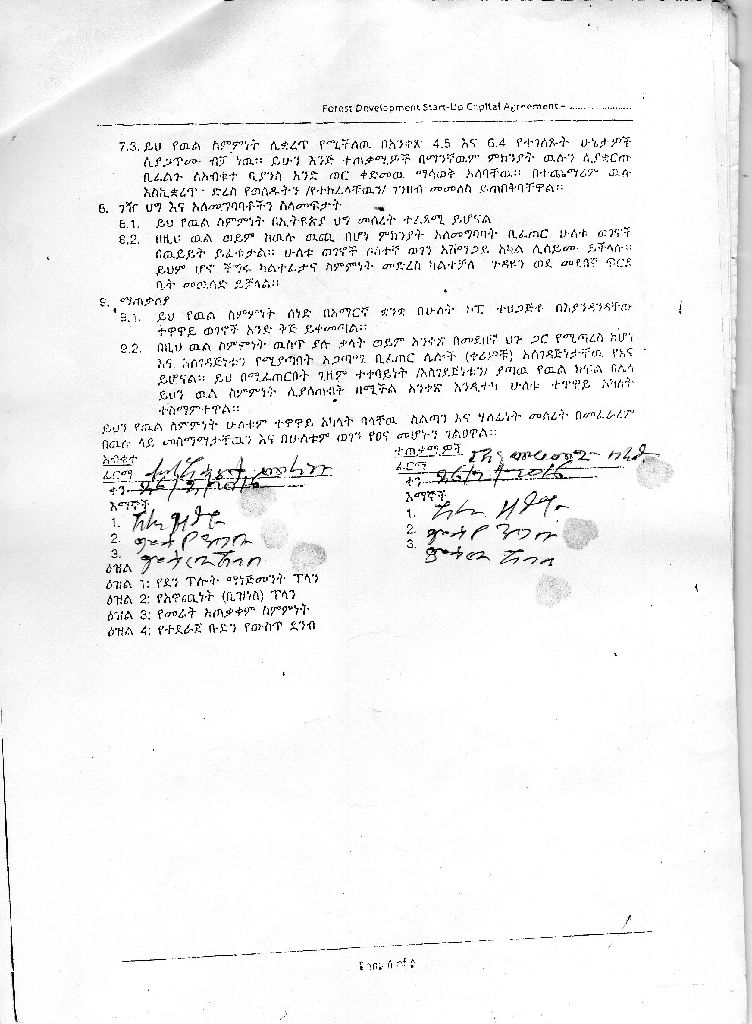 Forest Development Start-Up Capital Agreement - ......................
7.3. ይህ የዉል ስምምነት ሊቋረጥ የሚችለዉ በአንቀጽ 4.5 እና 6.4 የተገለጹት ሁኔታዎች
ሲያጋጥሙ ብቻ ነዉ። ይሁን እንጅ ተጠቃሚዎች በማንኛዉም ምክንያት ዉሉን ሲያቋርጡ
ቢፈልጉ ለአብቁተ ቢያንስ አንድ ወር ቀድመዉ ማሳወቅ አለባቸዉ። በተጨማሪም ዉሉ
እስኪቋረጥ ድረስ የወሰዱትን /የተከፈላቸዉን/ ገንዘብ መመለስ ይጠበቅባቸዋል።
8. ገዥ ህግ እና አለመግባባቶችን ስለመፍታት
8.1. ይህ የዉል ስምምነት በኢትዮጵያ ህግ መሰረት ተፈጻሚ ይሆናል
8.2. በዚህ ዉል ወይም ከዉሉ ዉጪ በሆነ ምክንያት አለመግባባት ቢፈጠር ሁለቱ ወገኖች
በዉይይት ይፈቱታል። ሁለቱ ወገኖች ሶስተኛ ወገን አሸማጋይ አካል ሊሰይሙ ይችላሉ።
ይህም ሆኖ ችግሩ ካልተፈታና ስምምነት መድረስ ካልተቻለ ጉዳዩን ወደ መደበኛ ፍርድ
ቤት መዉሰድ ይቻላል።
9. ማጠቃለያ
9.1. ይህ የዉል ስምምነት ሰነድ በአማርኛ ቋንቋ በሁለት ኮፒ ተዘጋጅቶ በእያንዳንዳቸው
ተዋዋይ ወገኖች አንድ ቅጅ ይቀመጣል።
9.2. በዚህ ዉል ስምምነት ዉስጥ ያሉ ቃላት ወይም አንቀጽ ከመደበኛ ህጉ ጋር የሚጣረስ ከሆነ
እና አስገዳጅነቱን የሚያጣበት አጋጣሚ ቢፈጠር ሌሎች (ቀሪዎች) አስገዳጅነታቸዉ የጸና
ይሆናል። ይህ በሚፈጠርበት ጊዜም ተቀባይነት /አስገዳጅነቱን/ ያጣዉ የዉል ክፍል በሌላ
ይህን ዉል ስምምነት ሊያሳጠብት በሚችል አንቀጽ እንዲተካ ሁለቱ ተዋዋይ አካላት
ተስማምተዋል።
ይህን የዉል ስምምነት ሁለቱም ተዋዋይ አካላት ባላቸዉ ስልጣን እና ሃላፊነት መሰረት በመፈራረም
በዉሉ ላይ መስማማታቸዉን እና በሁለቱም ወገን የጸና መሆኑን ገልፀዋል።
አብቁተ
ፊርማ
ቀን 26/2/2016
እማኞች
1.
2.
3.
ተጠቃሚዎች
ፊርማ
ቀን 26/2/2016
እማኞች
1.
2.
3.
ዕዝል
ዕዝል 1: የደን ፕሎት ማነጅመንት ፕላን
ዕዝል 2: የአዋጪነት (ቢዝነስ) ፕላን
ዕዝል 3: የመሬት አጠቃቀም ስምምነት
ዕዝል 4: የተደራጀ ቡድን የውስጥ ደንብ